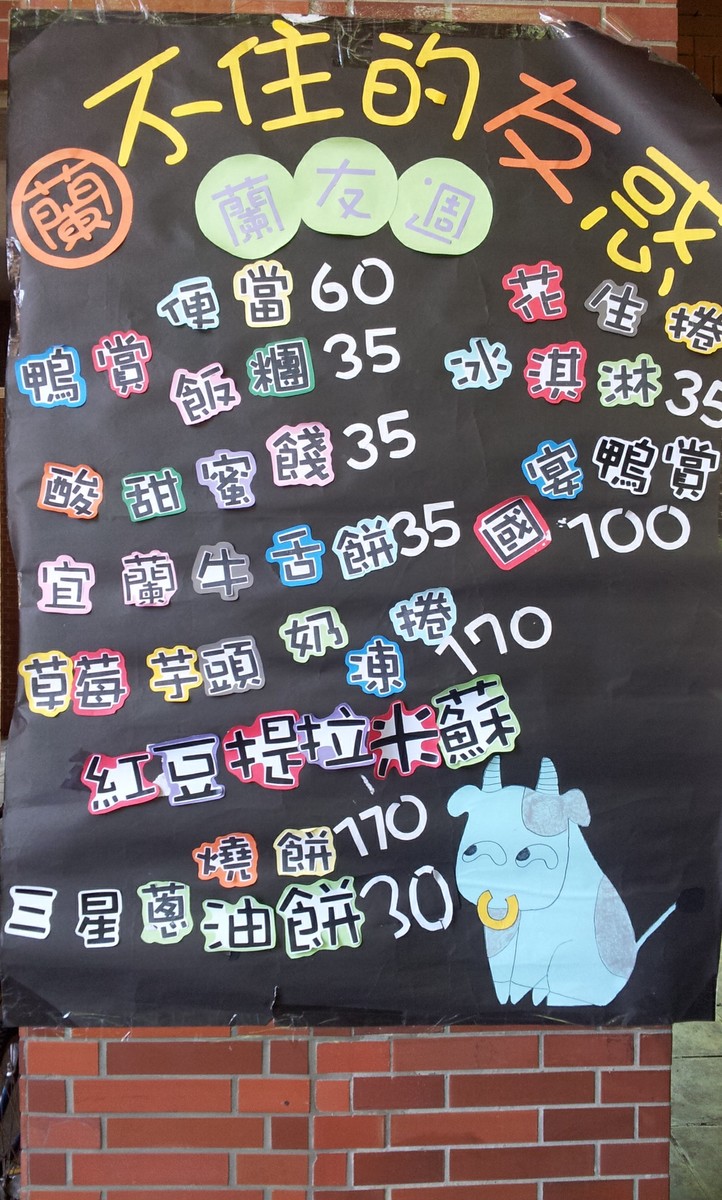 蘭不住的友惑
蘭友週
便當60
鴨賞飯糰35
酸甜蜜餞35
宜蘭牛舌餅35
草莓芋頭奶凍捲170
紅豆提拉米蘇170
燒餅
三星蔥油餅30
花生捲
冰淇淋35
宴鴨賞
國100